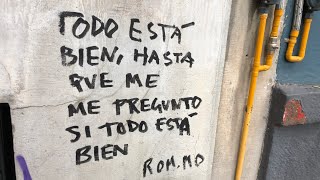 TODO ESTÁ
BIEN, HASTA
QUE ME
ME PREGUNTO
SI TODO ESTÁ
BIEN
ROM.MD